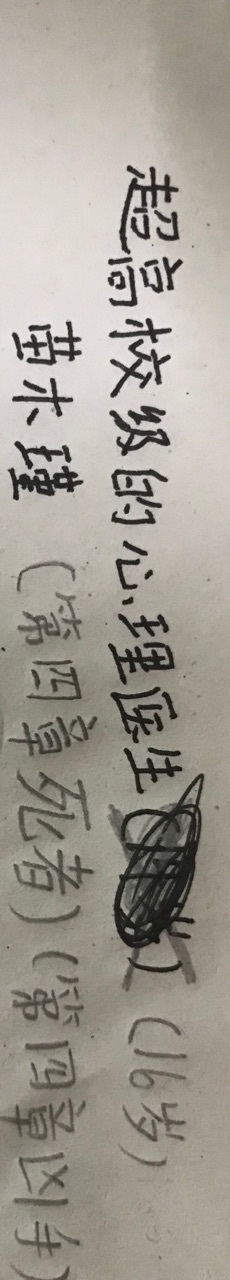 超高校级的心理医生（16岁）
苗木瑾（第四章死者）（第四章凶手）